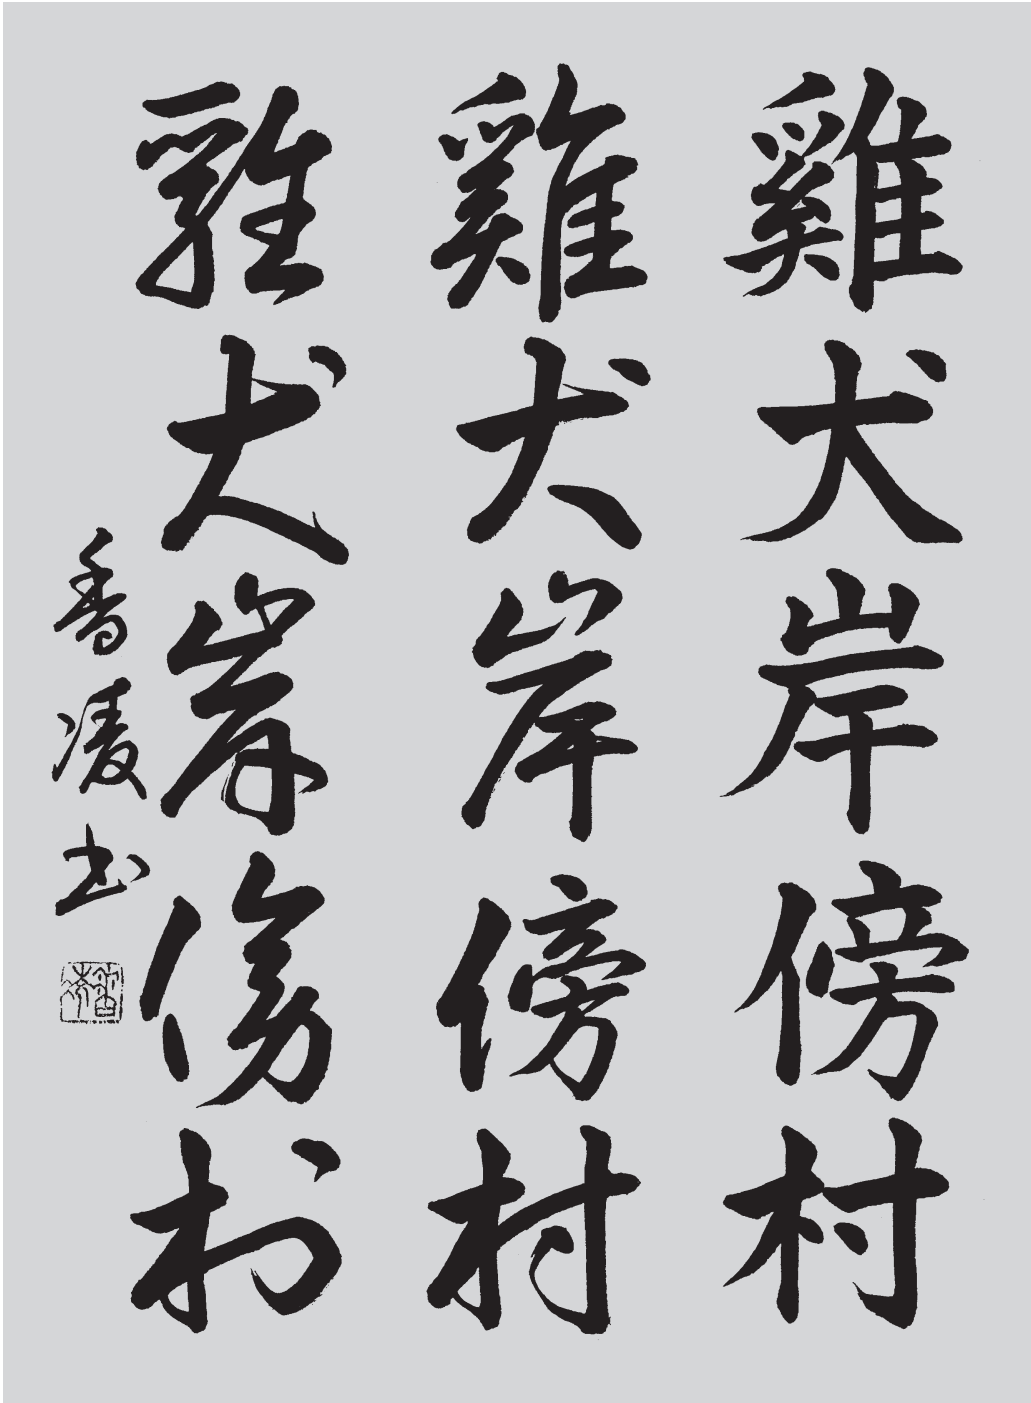 雞犬岸傍村
雞犬岸傍村
雞犬岸傍村
香凌书